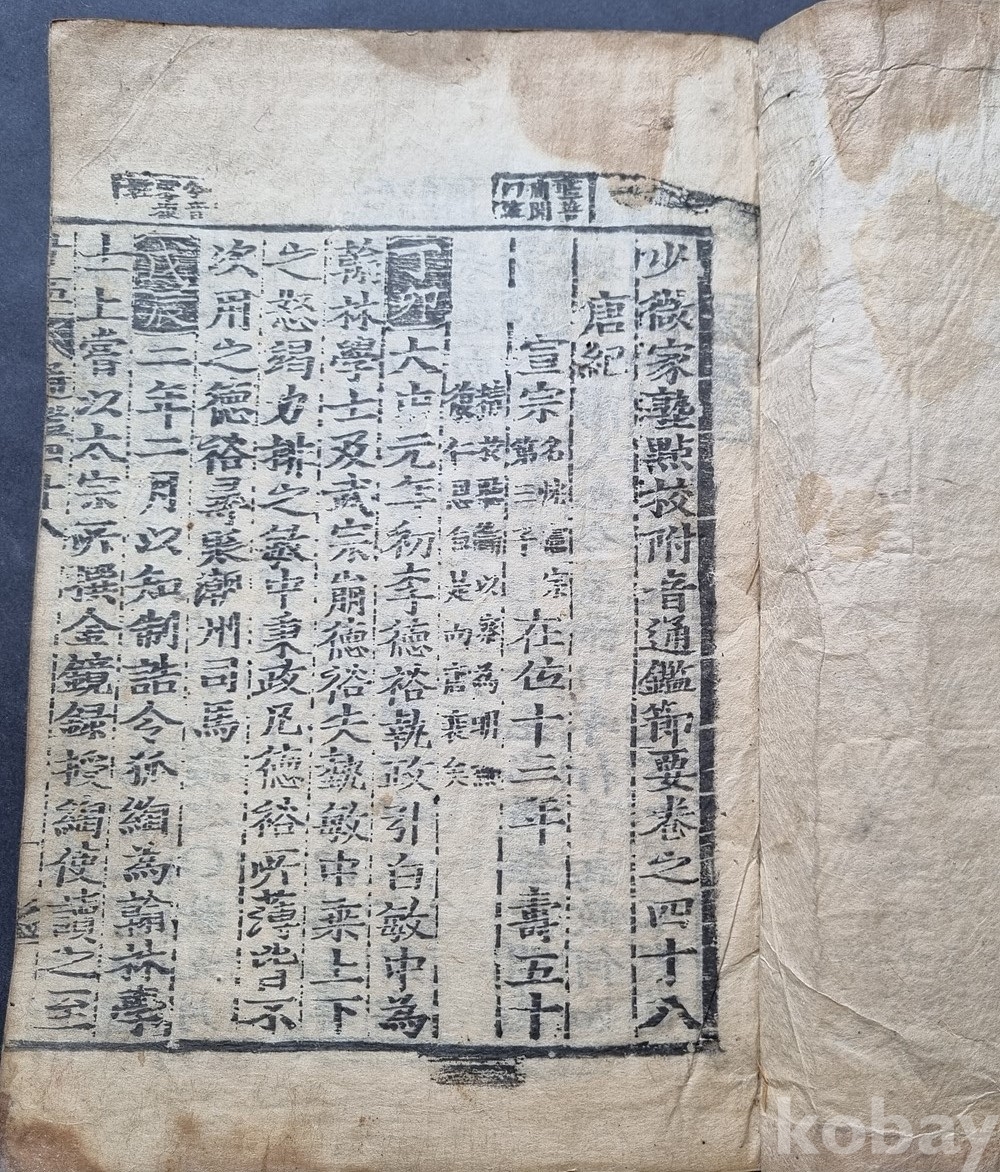 少微家塾點校附音通鑑節要卷之四十八
唐紀
宣宗 名忱憲宗第三子 在位十三年 壽五十
精於聽斷以察為明無
復仁恩自是而唐衰矣
丁卯大中元年初李德裕執政引白敏中為
翰林學士及武宗崩德裕失勢敏中乘上下
之怒竭力排之敏中秉政凡德裕所薄皆不
次用之德裕尋貶潮州司馬
戊辰二年二月以知制誥令狐綯為翰林學
士上嘗以太宗所撰金鏡錄授綯使讀之至
通鑑四十八
kobay